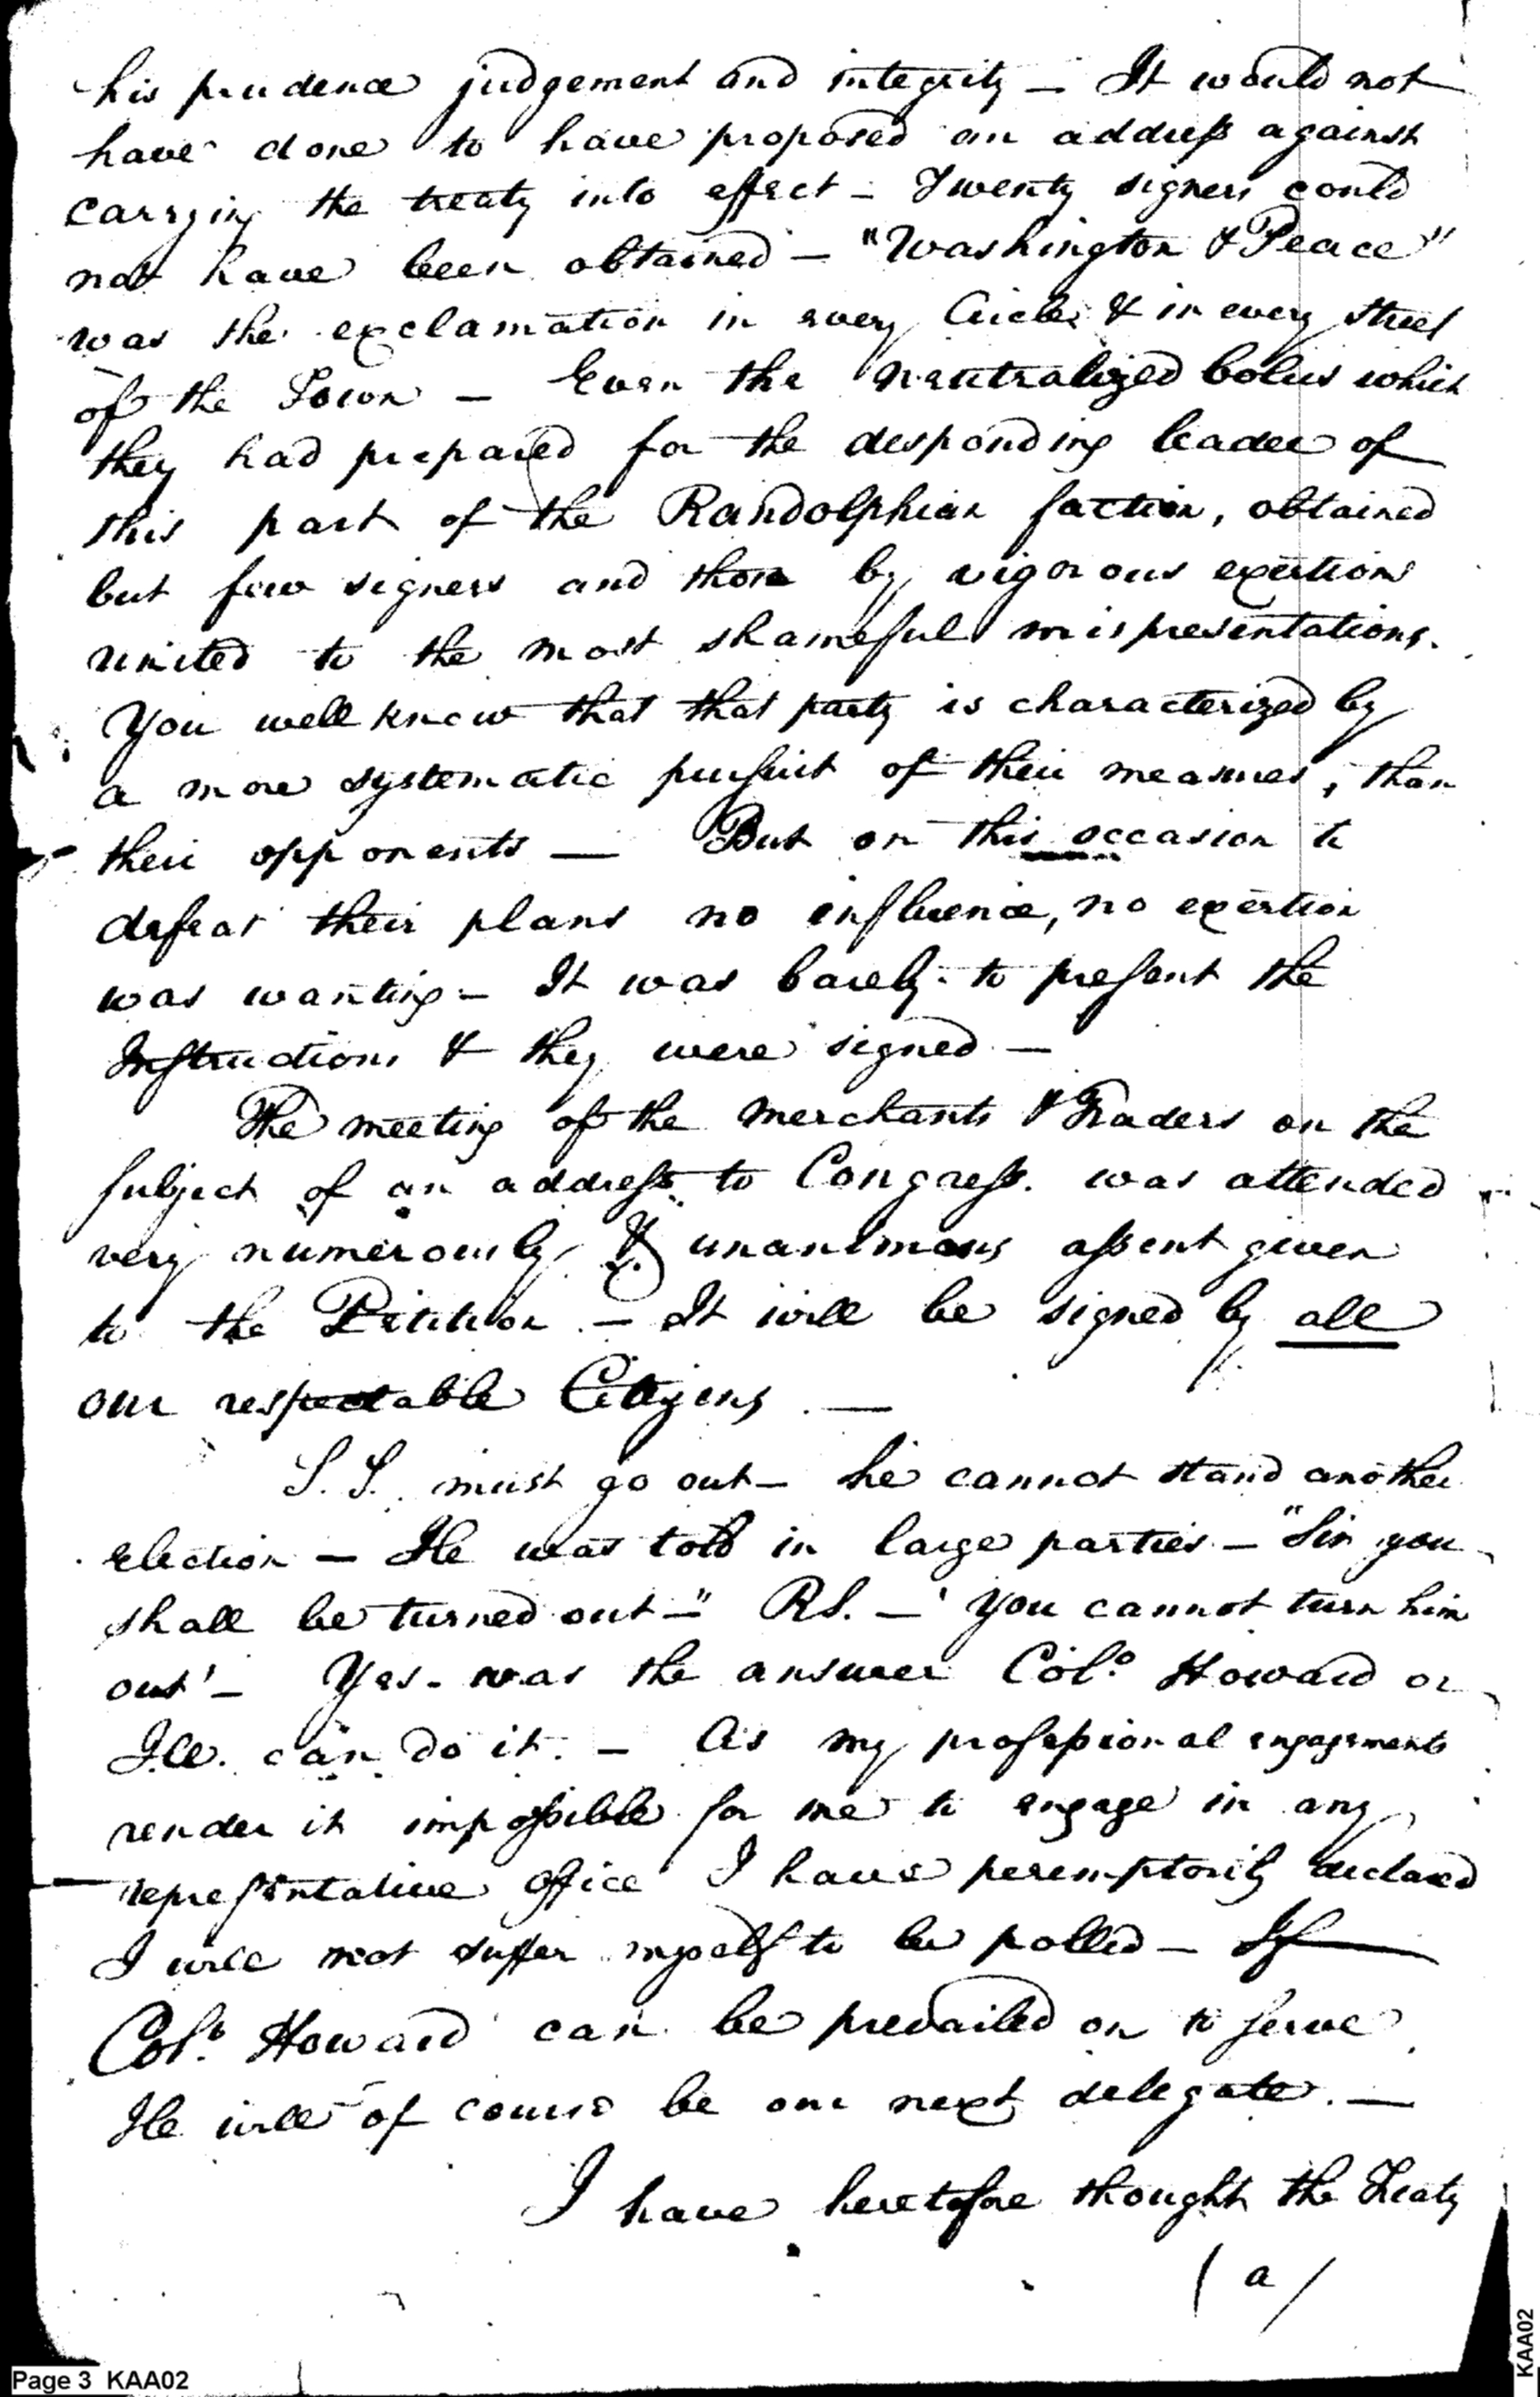 his prudence judgement and integrity — It would not
have done to have proposed an address against
carrying the treaty into effect — Twenty signers could
not have been obtained — "Washington & Peace"
was the exclamation in every Circle & in every street
of the Town — Even the neutralized bolus which
they had prepared for the desponding leader of
this part of the Randolphian faction, obtained
but few signers and those by vigorous exertions
united to the most shameful mispresentations.
You well know that that party is characterized by
a more systematic pursuit of their measures, than
their opponents — But on this occasion to
defeat their plans no influence, no exertion
was wanting — It was barely to present the
Instructions & they were signed —
The meeting of the Merchants & Traders on the
subject of an address to Congress. was attended
very numerously & unanimous assent given
to the Petition — It will be signed by all
our respectable Citizens. —
S. S. must go out — he cannot stand another
election — He was told in large parties — "Sir you
shall be turned out —" RS. — 'You cannot turn him
out' — Yes - was the answer Colo. Howard or
can do it. — As my professional engagements
render it impossible for me to engage in any
representative office I have peremptorily declared
I will not suffer myself to be polled — If
Colo. Howard can be prevailed on to serve
He will of course be our next delegate. —
I have heretofore thought the Treaty
(a)
Page 3 KAA02
KAA02